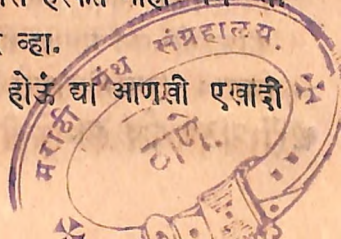 व्हा.
होऊं द्या आणखी एखादी
मराठी ग्रंथ संग्रहालय.
ठाणे.